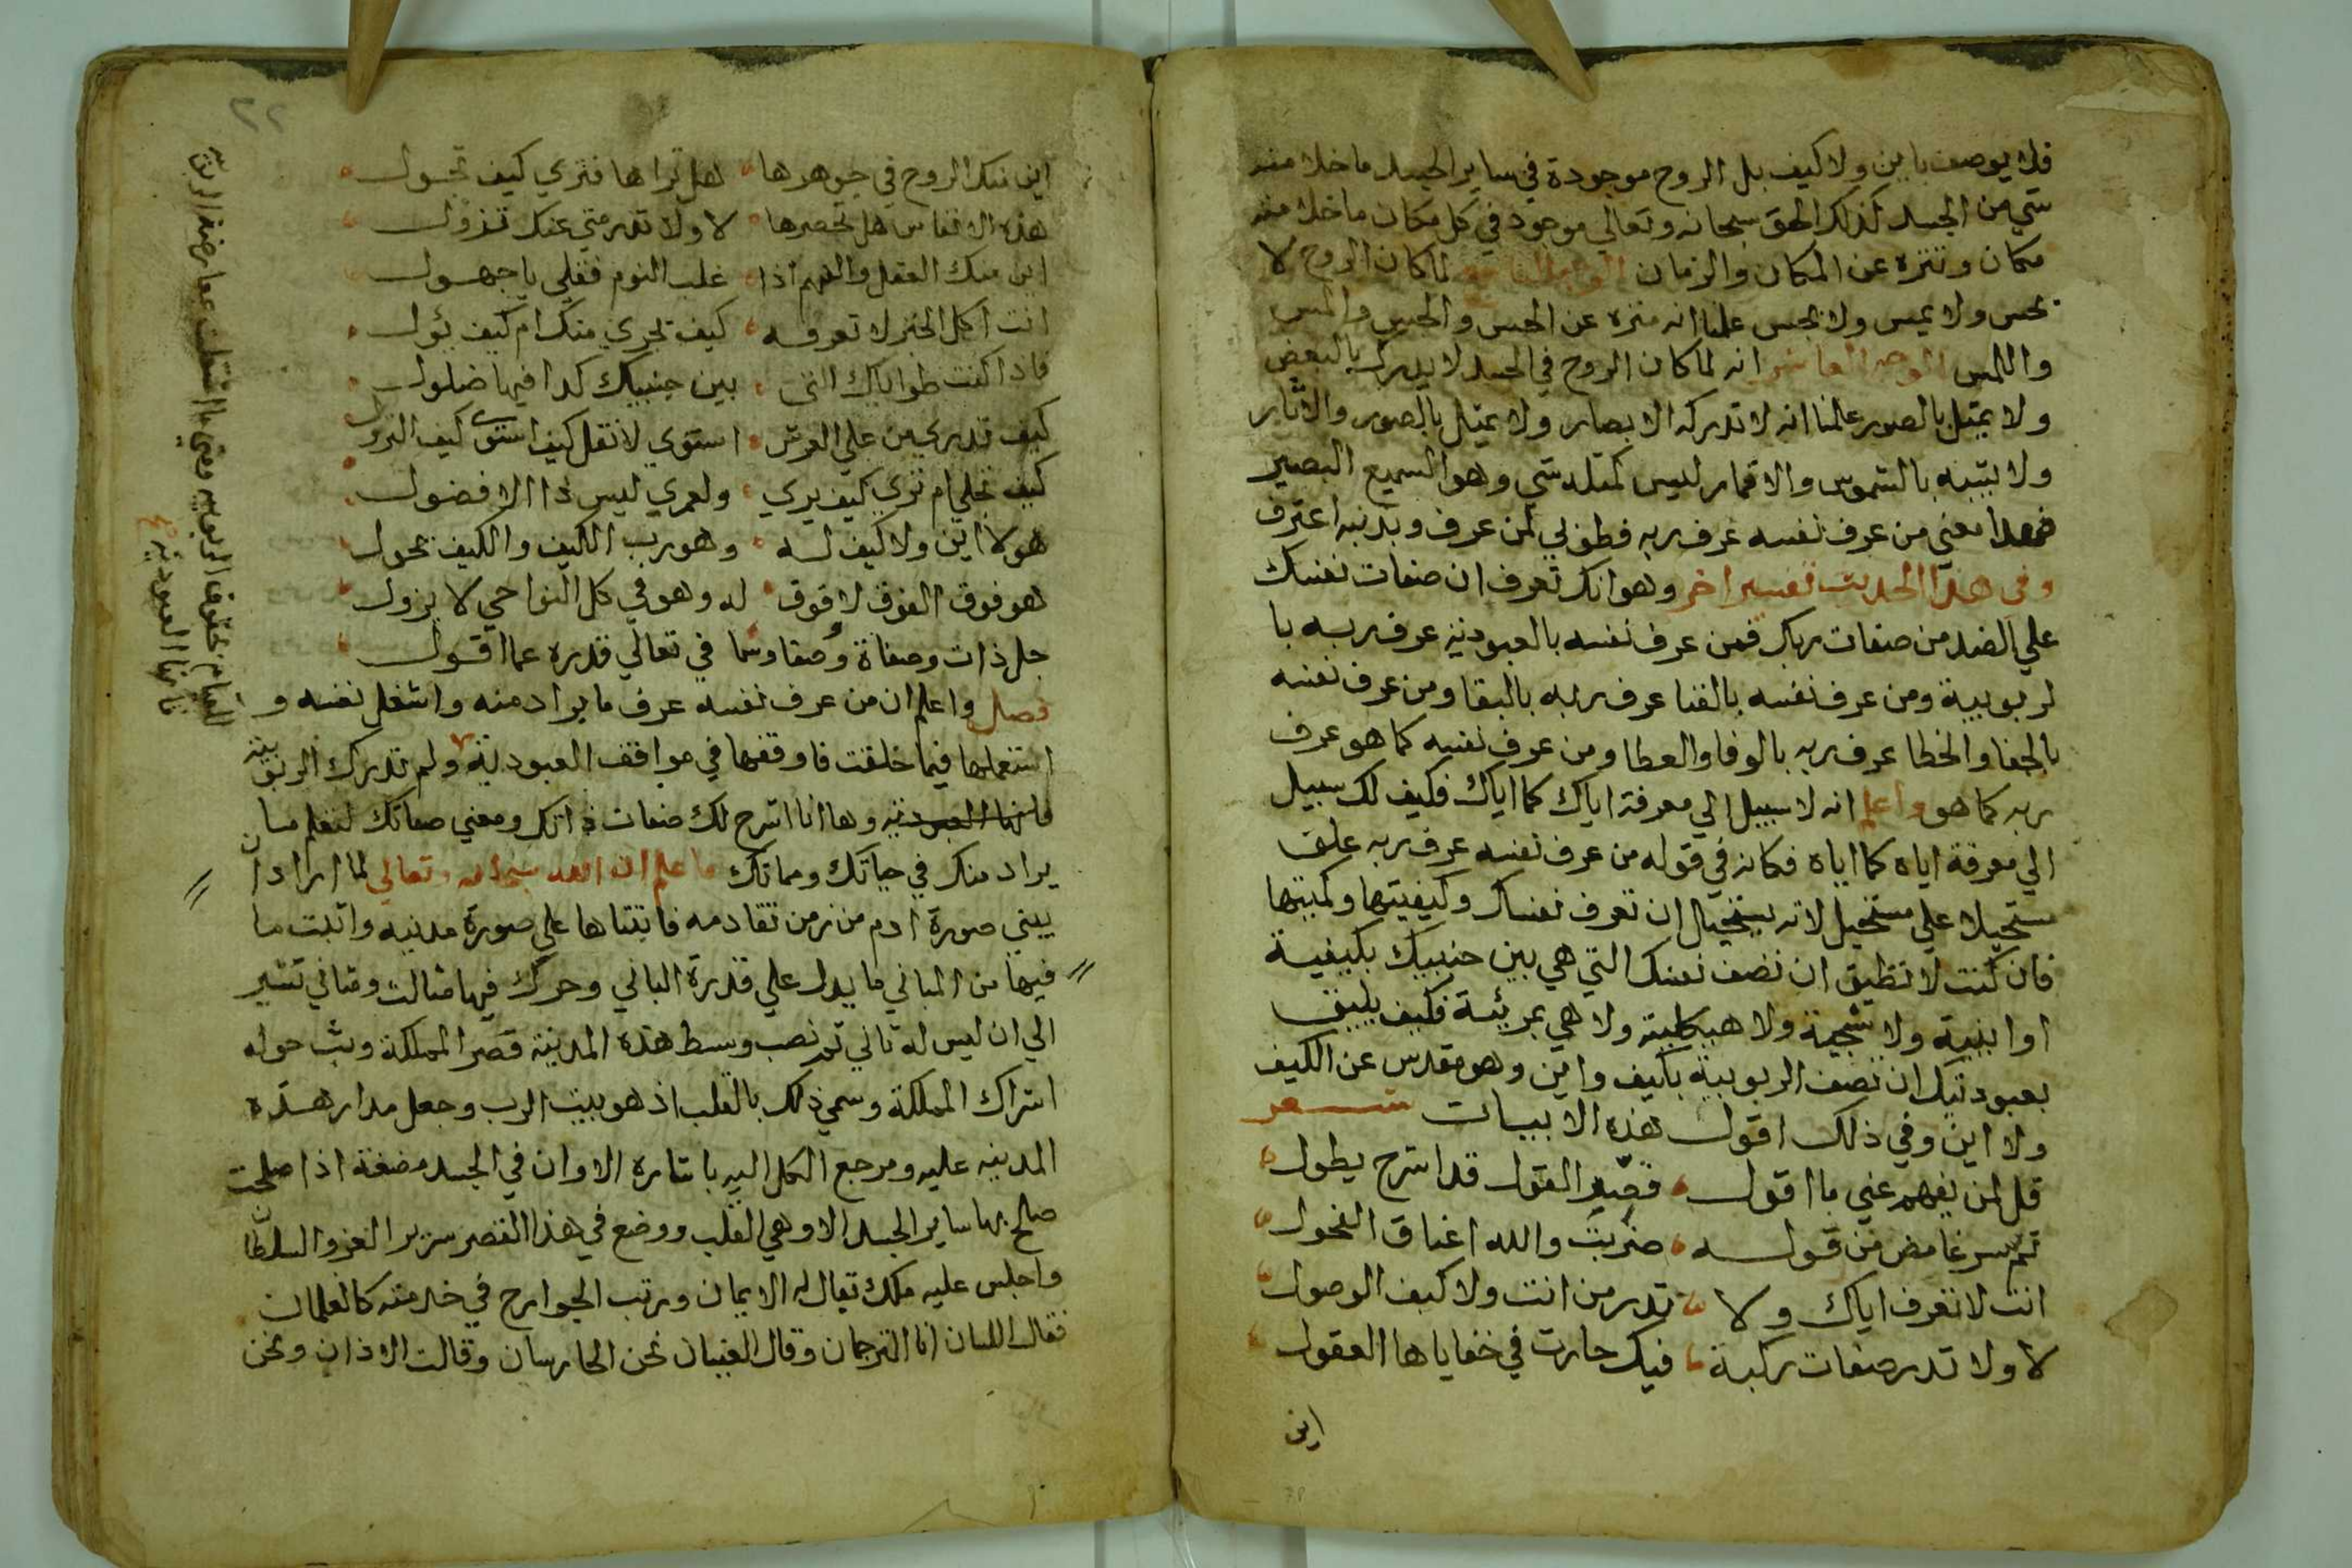 فلا يوصف باين ولا كيف بل الروح موجودة في ساير الجسد ما خلا منه
شي من الجسد كذلك الحق سبحانه وتعالي موجود في كل مكان ما خلا منه
مكان وتنزه عن المكان والزمان الوجه التاسع لما كان الروح لا
يحس ولا يمس ولا يجس علمنا انه منزه عن الحس والجس والمس
واللمس الوجه العاشر انه لما كان الروح في الجسد لا يدرك بالبعض
ولا يمثل بالصور علمنا انه لا تدركه الابصار ولا يمثل بالصور والاثار
ولا يشبه بالشموس والاقمار ليس كمثله شي وهو السميع البصير
فهذا معني من عرف نفسه عرف ربه فطوبي لمن عرف وبذنبه اعترف
وفي هذا الحديث تفسير اخر وهو انك تعرف ان صفات نفسك
علي الضد من صفات ربك فمن عرف نفسه بالعبودية عرف ربه با
لربوبية ومن عرف نفسه بالفنا عرف ربه بالبقا ومن عرف نفسه
بالجفا والخطا عرف ربه بالوفا والعطا ومن عرف نفسه كما هو عرف
ربه كما هو واعلم انه لا سبيل الي معرفة اياك كما اياك فكيف لك سبيل
الي معرفة اياه كما اياه فكانه في قوله من عرف نفسه عرف ربه علق
مستحيلا علي مستحيل لانه يستحيل ان تعرف نفسك وكيفيتها وكميتها
فان كنت لا تطيق ان تصف نفسك التي هي بين جنبيك بكيفية
او اينية ولا شجية ولا هيكلية ولا هي بمرئية فكيف يليق
بعبوديتك ان تصف الربوبية بكيف واين وهو مقدس عن الكيف
ولا اين وفي ذلك اقول هذه الابيات شعر
قل لمن يفهم عني ما اقول قصر القول فذا شرح يطول
ثم سر غامض من قوله ضربت والله اعناق الفحول
انت لا تعرف اياك ولا تدر من انت ولا كيف الوصول
لا ولا تدر صفات ركبة فيك حارت في خفاياها العقول
اين
٢٢
اين منك الروح في جوهرها هل تراها فتري كيف تجول
هذه الانفاس هل تحصرها لا ولا تدر متي عنك تزول
اين منك العقل والفهم اذا غلب النوم فقلي يا جهول
انت اكل الخبز لا تعرفه كيف يجري منك ام كيف يئول
فاذا كنت طواياك التي بين جنبيك كذا فيها ضلول
كيف تدري من علي العرش استوي لا تقل كيف استوي كيف النزول
كيف تجلي ام تري كيف يري ولعمري ليس ذا الا فضول
هو لا اين ولا كيف له وهو رب الكيف والكيف يحول
هو فوق الفوق لا فوق له وهو في كل النواحي لا يزول
جل ذات وصفاة وصفا وسما في تعالي قدره عما اقول
فصل واعلم ان من عرف نفسه عرف ما يراد منه واشغل نفسه و
استعملها فيما خلقت فاوقفها في مواقف العبودية ولم تدرك الربوبية
فانها العبودية وها انا اشرح لك صفات ذاتك ومعني صفاتك لتعلم ما
يراد منك في حياتك ومماتك فاعلم ان الله سبحانه وتعالي لما اراد ان
يبني صورة ادم من زمن تقادمه فابتناها علي صورة مدنيه واثبت ما
فيها من المباني ما يدل علي قدرة الباني وحرك فيها مثالث ومثاني تشير
الي ان ليس له ثاني ثم نصب وسط هذه المدينة قصر المملكة وبث حوله
اشراك المملكة وسمي ذلك بالقلب اذ هو بيت الرب وجعل مدار هذه
المدينه عليه ومرجع الكل اليه باشاره الا وان في الجسد مضغة اذا صلحت
صلح بها ساير الجسد الا وهي القلب ووضع في هذا القصر سرير العز والسلطان
واجلس عليه ملك يقال له الايمان ورتب الجوارح في خدمته كالغلمان
فقال اللسان انا الترجمان وقال العينان نحن الحارسان وقالت الاذان ونحن
للقيام بحقوق الربوبيه ومتي ما اشتغلت عما رضية الرب
فاتها العبودية